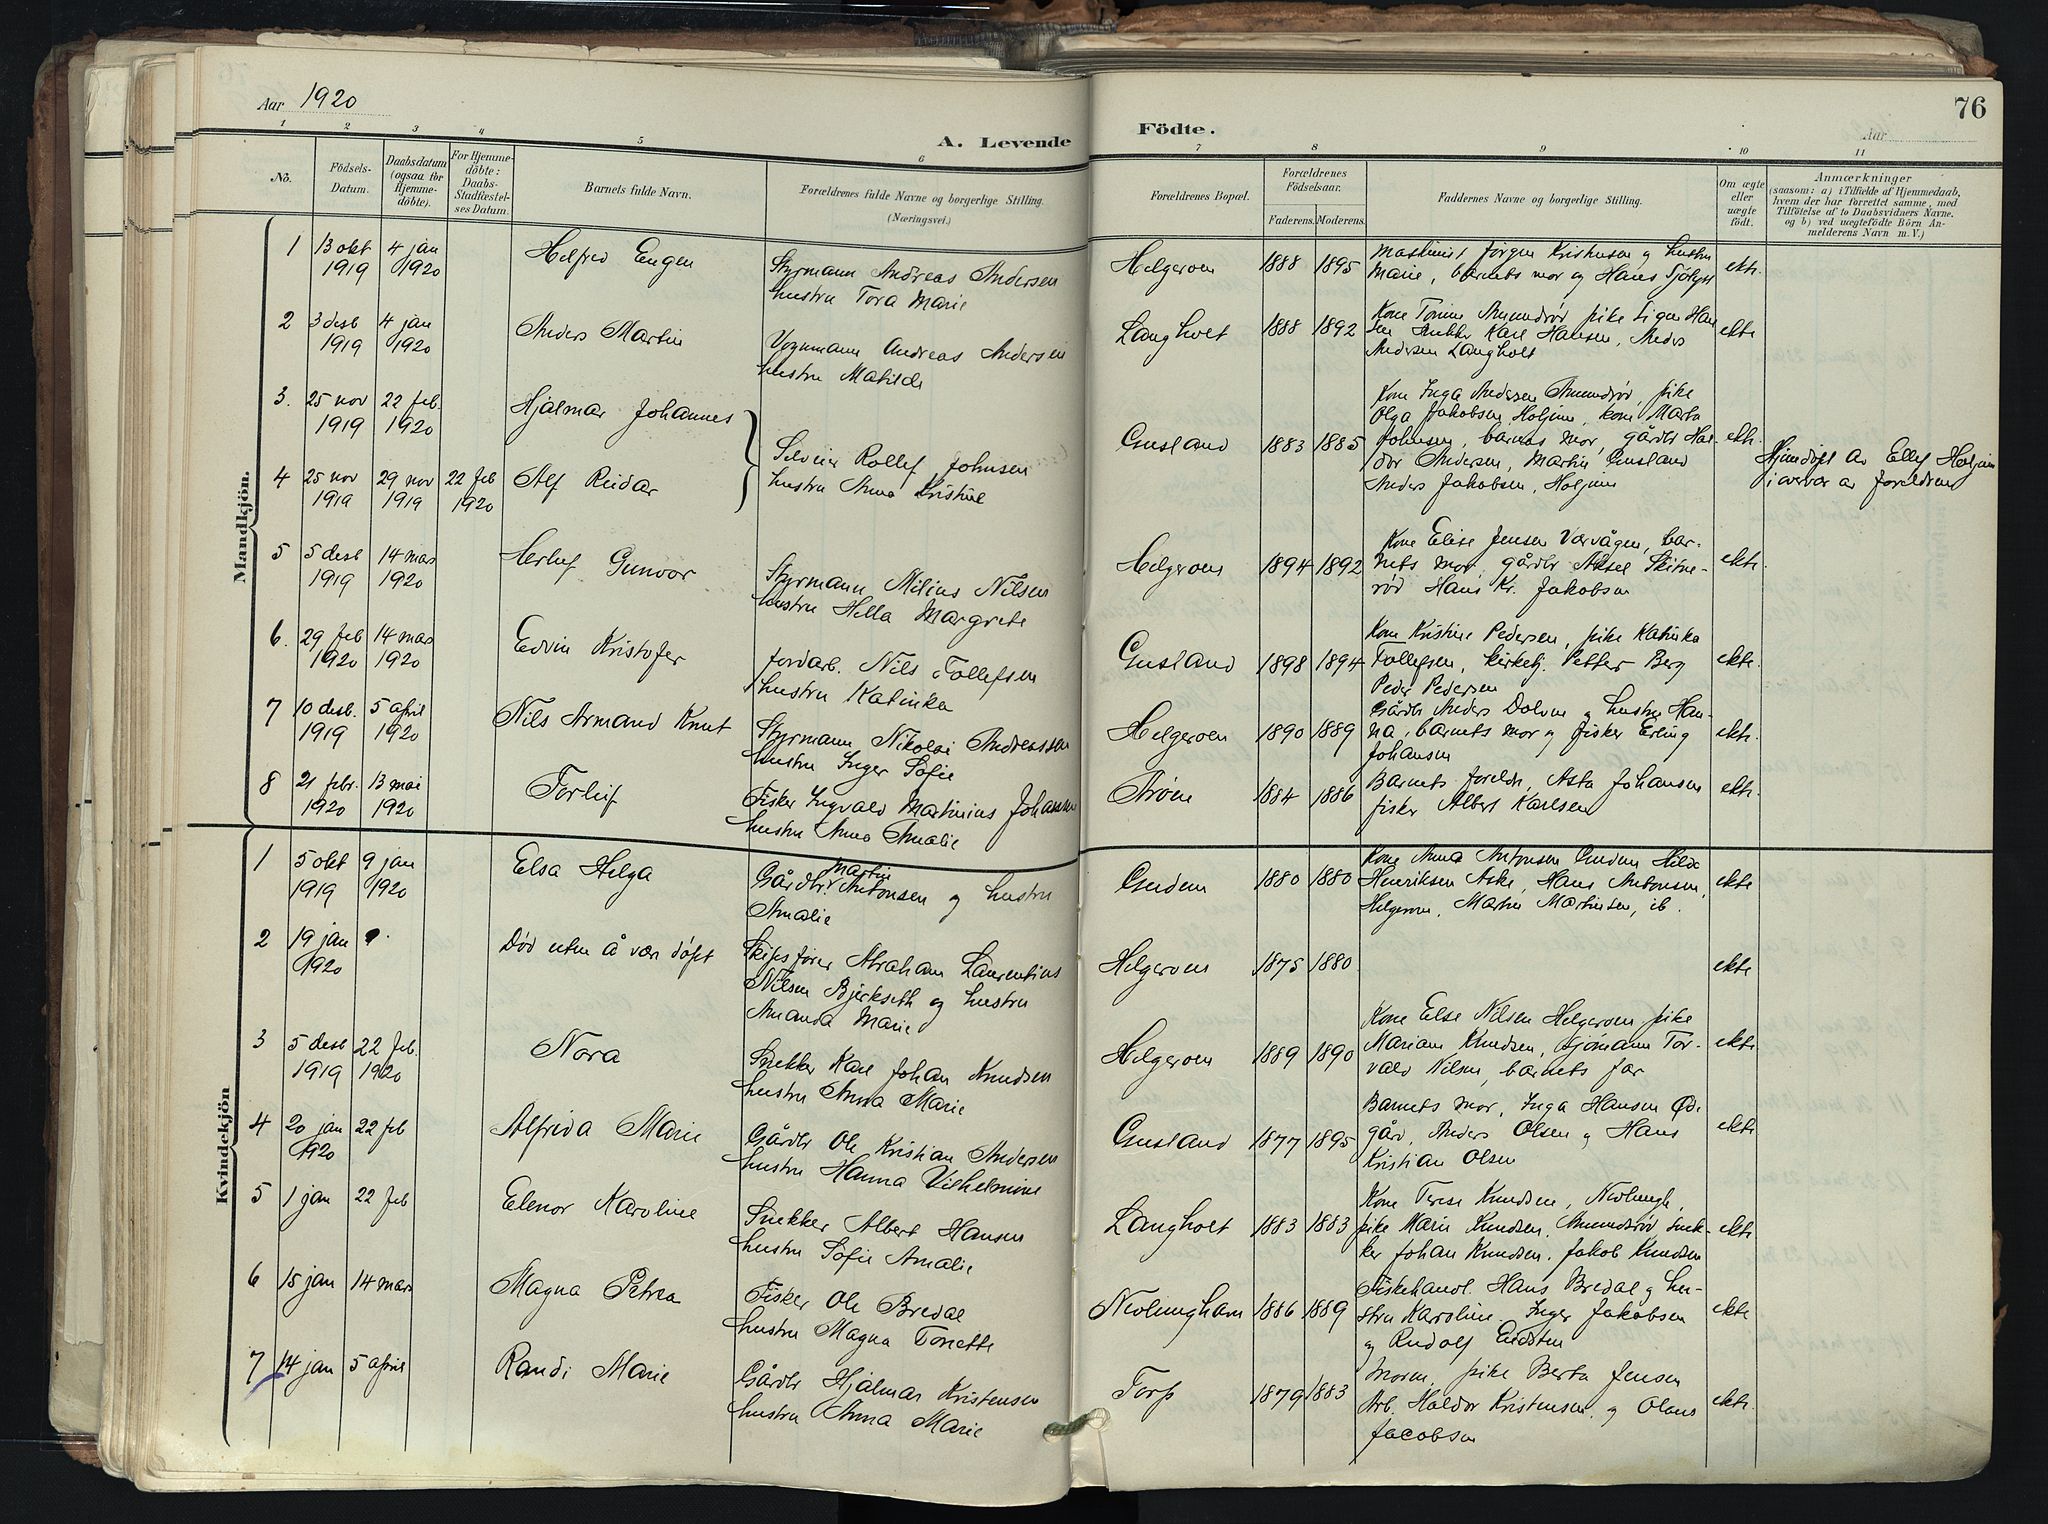 Aar 1920
A. Levende
Födte.
76
Aar
1 2 3 4 5 6 7 8 9 10 11
No.
Födsels-
Datum.
Daabsdatum
(ogsaa for
Hjemme-
döbte).
For Hjemme-
döbte:
Daabs-
Stadfæstel-
ses Datum.
Barnets fulde Navn.
Forældrenes fulde Navne og borgerlige Stilling.
(Næringsvei.)
Forældrenes Bopæl.
Forældrenes
Födselsaar.
Faderens. Moderens.
Faddernes Navne og borgerlige Stilling.
Om ægte
eller
uægte
födt.
Anmærkninger
(saasom: a) i Tilfælde af Hjemmedaab,
hvem der har forrettet samme, med
Tilföielse af to Daabsvidners Navne,
og b) ved uægtefödte Börn An-
melderens Navn m. V.)
Mandkjön.
1 13 okt 1919 4 jan 1920
Styrmann Andreas Andersen
hustru Tora Marie
Helgeroen 1888 1895
Maskinist Jørgen Kristensen og hustru
Marie, barnets mor og Hans
ekte.
2 3 desb 1919 4 jan 1920
Anders Martin
Andreas Andersen
hustru Matilde
Langholt 1888 1892
Kone Tomine Amundrød pike Signe Han
sen Snekker Karl Hansen, Anders
Andersen Langholt
ekte
3. 25 nov 1919 22 feb. 1920
Hjalmar Johannes
4 25 nov 1919 29 nov 1919 22 feb 1920
Alf Reidar
Rollef Johnsen
hustru Anna Kristine
Gusland 1883 1885
Kone Inga Andersen Amundrød, pike
Olga Jakobsen, Holjem, kone Marta
Johnsen, barnas mor, gårdbr Hal-
dor Andersen, Martin Gusland
Anders Jakobsen, Holjem
ekte.
Hjemdøpt av Ellef Holjem
i nærvær av foreldrene
5 5 desb 1919 14 mars 1920
Herlief Gunvor
Styrmann Milius Nilsen
hustru Hella Margrete
Helgeroen 1894 1892
Kone Elise Jensen Værvågen, bar-
nets mor, gårdbr Aksel Skitne-
rød Hans Kr. Jakobsen
ekte.
6. 29 feb 1920 14 mars 1920
Edvin Kristofer
Jordarb. Nils Tollefsen
hustru Katinka
Gusland 1898 1894
Kone Kristine Pedersen, pike Katinka
Tollefsen, kirketj. Petter Berg
Peder Pedersen
ekte.
7 10 desb. 1919 5 april 1920
Nils Armand Knut
Styrmann Nikolai Andreassen
hustru Inger Sofie
Helgeroen 1890 1889
Gårdbr Anders Dolven og hustru Han-
na, barnets mor og fisker Erling
Johansen
ekte.
8 21 febr. 1920 13 mai 1920
Torleif
Fisker Ingvald Martinius Johansen
hustru Anna Amalie
1884 1886
Barnets foreldre, Asta Johansen
fisker Albert Karlsen
ekte.
Kvindekjön
1 5 okt 1919 9 jan 1920
Elsa Helga
Martin
Gårdbr Antonsen og hustru
Amalie
Gudem 1880 1880
Kone Anna Antonsen Gudem Hilda
Henriksen Aske, Hans Antonsen,
Helgeroen, Martin Martinsen, ib.
ekte
2 19 jan 1920
Død uten å være døpt
Skipsfører Abraham Laurentius
Nilsen Bjerkseth og hustru
Amanda Marie
Helgeroen 1875 1880
ekte
3 5 desb 1919 22 feb. 1920
Nora
Snekker Karl Johan Knudsen
hustru Anna Marie
Helgeroen 1889 1890
Kone Else Nilsen Helgeroen pike
Mariam Knudsen, sjømann Tor-
vald Nilsen, barnets far
ekte
4 20 jan 1920 22 feb
Alfrida Marie
Gårdbr Ole Kristian Andersen
hustru Hanna Vilhelmine
Gusland 1877 1895
Barnets mor, Inga Hansen Øde
gård, Anders Olsen og Hans
Kristian Olsen
ekte
5 1 jan 22 feb
Elenor Karoline
Snekker Albert Hansen
hustru Sofie Amalie
Langholt 1883 1883
Kone Terese Knudsen, Nevlungh,
pike Marie Knudsen, Amundrød Snek-
ker Johan Knudsen, Jakob Knudsen
ekte
6 15 jan 14 mars
Magna Petrea
Fisker Ole Bredal
hustru Magna Tonette
Nevlunghavn 1886 1889
Fiskehandl. Hans Bredal og hu-
stru Karoline Inger Jakobsen
og Rudolf Eidsten
ekte
7 14 jan 5 april
Randi Marie
Gårdbr Hjalmar Kristensen
hustru Anna Marie
Torp 1879 1883
Moren, pike Berta Jensen
Arb. Haldor Kristensen og Olaus
Jacobsen
ekte.